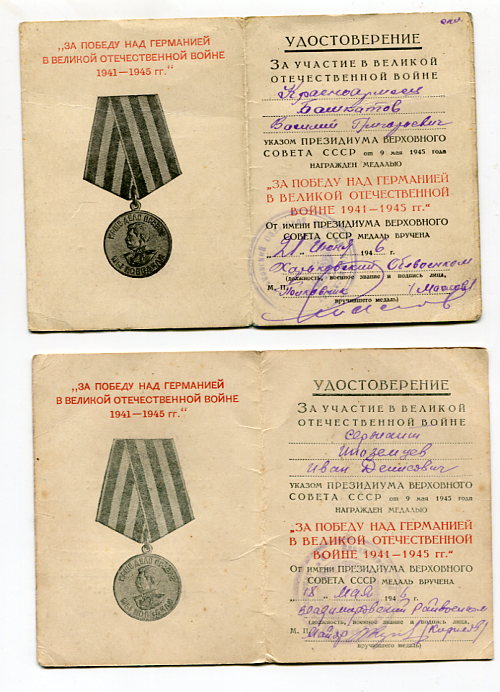 „ЗА ПОБЕДУ НАД ГЕРМАНИЕЙ
В ВЕЛИКОЙ ОТЕЧЕСТВЕННОЙ ВОЙНЕ
1941—1945 гг.“
НАШЕ ДЕЛО ПРАВОЕ
МЫ ПОБЕДИЛИ
УДОСТОВЕРЕНИЕ
ЗА УЧАСТИЕ В ВЕЛИКОЙ
ОТЕЧЕСТВЕННОЙ ВОЙНЕ
Красноармеец
Башкатов
Василий Григорьевич
УКАЗОМ ПРЕЗИДИУМА ВЕРХОВНОГО
СОВЕТА СССР от 9 мая 1945 года
НАГРАЖДЕН МЕДАЛЬЮ
„ЗА ПОБЕДУ НАД ГЕРМАНИЕЙ
В ВЕЛИКОЙ ОТЕЧЕСТВЕННОЙ
ВОЙНЕ 1941—1945 гг.“
От имени ПРЕЗИДИУМА ВЕРХОВНОГО
СОВЕТА СССР МЕДАЛЬ ВРУЧЕНА
„21“ июня 1946 г.
Харьковский Облвоенком
(должность, воинское звание и подпись лица,
М. П. Полковник
вручившего медаль)
„ЗА ПОБЕДУ НАД ГЕРМАНИЕЙ
В ВЕЛИКОЙ ОТЕЧЕСТВЕННОЙ ВОЙНЕ
1941—1945 гг.“
НАШЕ ДЕЛО ПРАВОЕ
МЫ ПОБЕДИЛИ
УДОСТОВЕРЕНИЕ
ЗА УЧАСТИЕ В ВЕЛИКОЙ
ОТЕЧЕСТВЕННОЙ ВОЙНЕ
сержант
Иноземцев
Иван Денисович
УКАЗОМ ПРЕЗИДИУМА ВЕРХОВНОГО
СОВЕТА СССР от 9 мая 1945 года
НАГРАЖДЕН МЕДАЛЬЮ
„ЗА ПОБЕДУ НАД ГЕРМАНИЕЙ
В ВЕЛИКОЙ ОТЕЧЕСТВЕННОЙ
ВОЙНЕ 1941—1945 гг.“
От имени ПРЕЗИДИУМА ВЕРХОВНОГО
СОВЕТА СССР МЕДАЛЬ ВРУЧЕНА
„18“ мая 1946 г.
Райвоенком
(должность, воинское звание и подпись лица,
М. П. Майор
вручившего медаль)